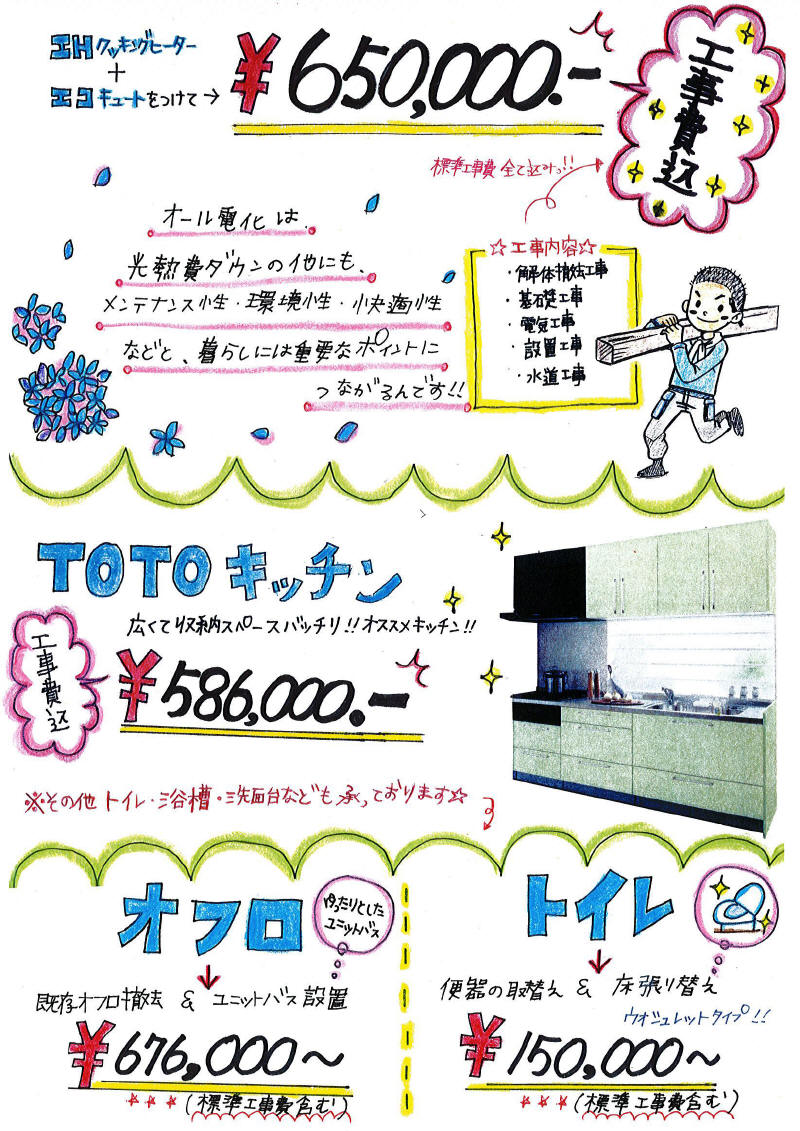 エHクッキングヒーター
+
エコキュートをつけて→
¥650,000.-
工事費込
標準工事費全て込みっ!!
オール電化は、
光熱費ダウンの他にも、
メンテナンス性・環境性・快適性
などと、暮らしには重要なポイントに
つながるんです!!
☆工事内容☆
・解体撤去工事
・基礎工事
・電気工事
・設置工事
・水道工事
TOTOキッチン
広くて収納スペースバッチリ!!オススメキッチン!!
工事費込
¥586,000.-
※その他トイレ・浴槽・洗面台なども承っております☆
オフロ
ゆったりとした
ユニットバス
既存オフロ撤去 & ユニットバス設置
¥676,000～
★★★(標準工事費含む)
トイレ
便器の取替え & 床張り替え
ウォシュレットタイプ!!
¥150,000～
★★★(標準工事費含む)